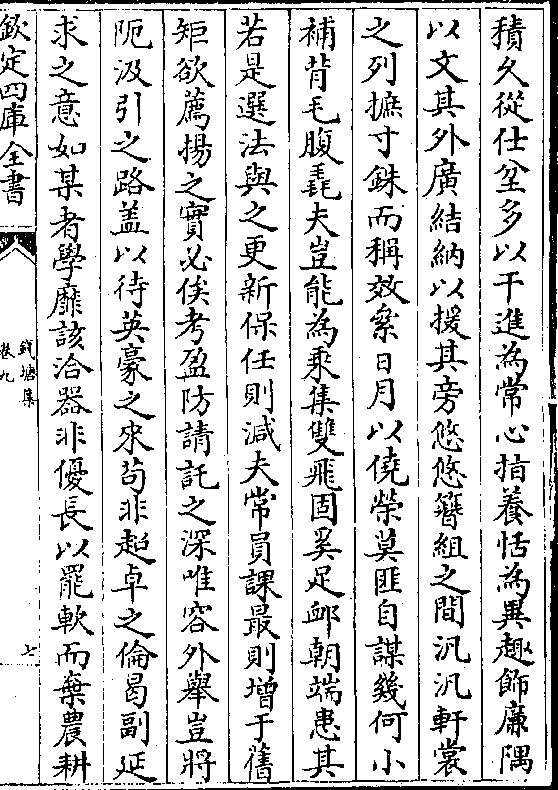 積久從仕坌多以干進為常心指養恬為異趣飾廉隅
以文其外廣結納以援其旁悠悠簪組之間汎汎軒裳
之列摭寸銖而稱效絫日月以僥榮莫匪自謀幾何小
補背毛腹毳夫豈能為乘集雙飛固奚足䘏朝端患其
若是選法與之更新保任則減夫常員課最則增于舊
矩欲薦揚之實必俟考盈防請託之深唯容外舉豈將
阨汲引之路盖以待英豪之來苟非超卓之倫曷副延
求之意如某者學靡該洽器非優長以罷軟而棄農耕
欽定四庫全書
錢塘集
卷九
七